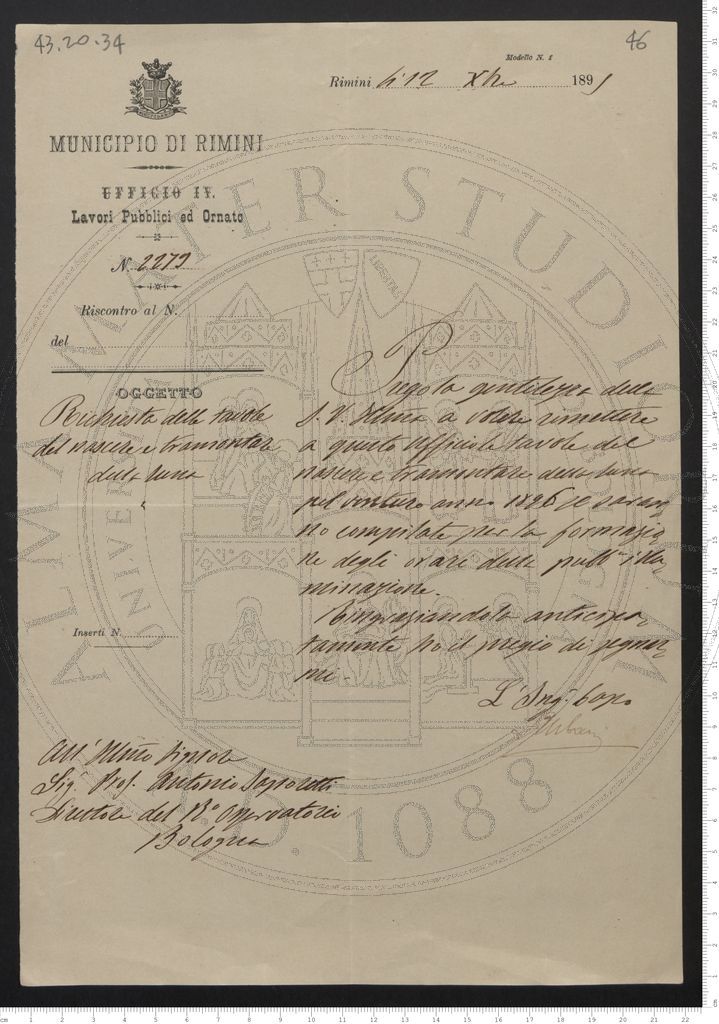 43.20.34
46
Modello N. 1
Rimini li 12 Xbre 1895
MUNICIPIO DI RIMINI
UFFICIO IV.
Lavori Pubblici ed Ornato
N. 2279
Riscontro al N.
del
OGGETTO
Richiesta delle tavole
del nascere e tramontar
della luna
Prego la gentilezza della
S. V. Illma a volere rimettere
a questo Ufficio le tavole del
nascere e tramontare della luna
pel venturo anno 1896 se saran
no compilate per la formazio
ne degli orari della pubb.ca illu
minazione.
Ringraziandola anticipa
tamente ho il pregio di segnar
mi.
L'Ing. Capo
Inserti N.
All'Illmo Signore
Sig. Prof. Antonio Saporetti
Direttore del R.o Osservatorio
Bologna
ALMA MATER STUDIORUM
A.D. 1088
LIBERTAS